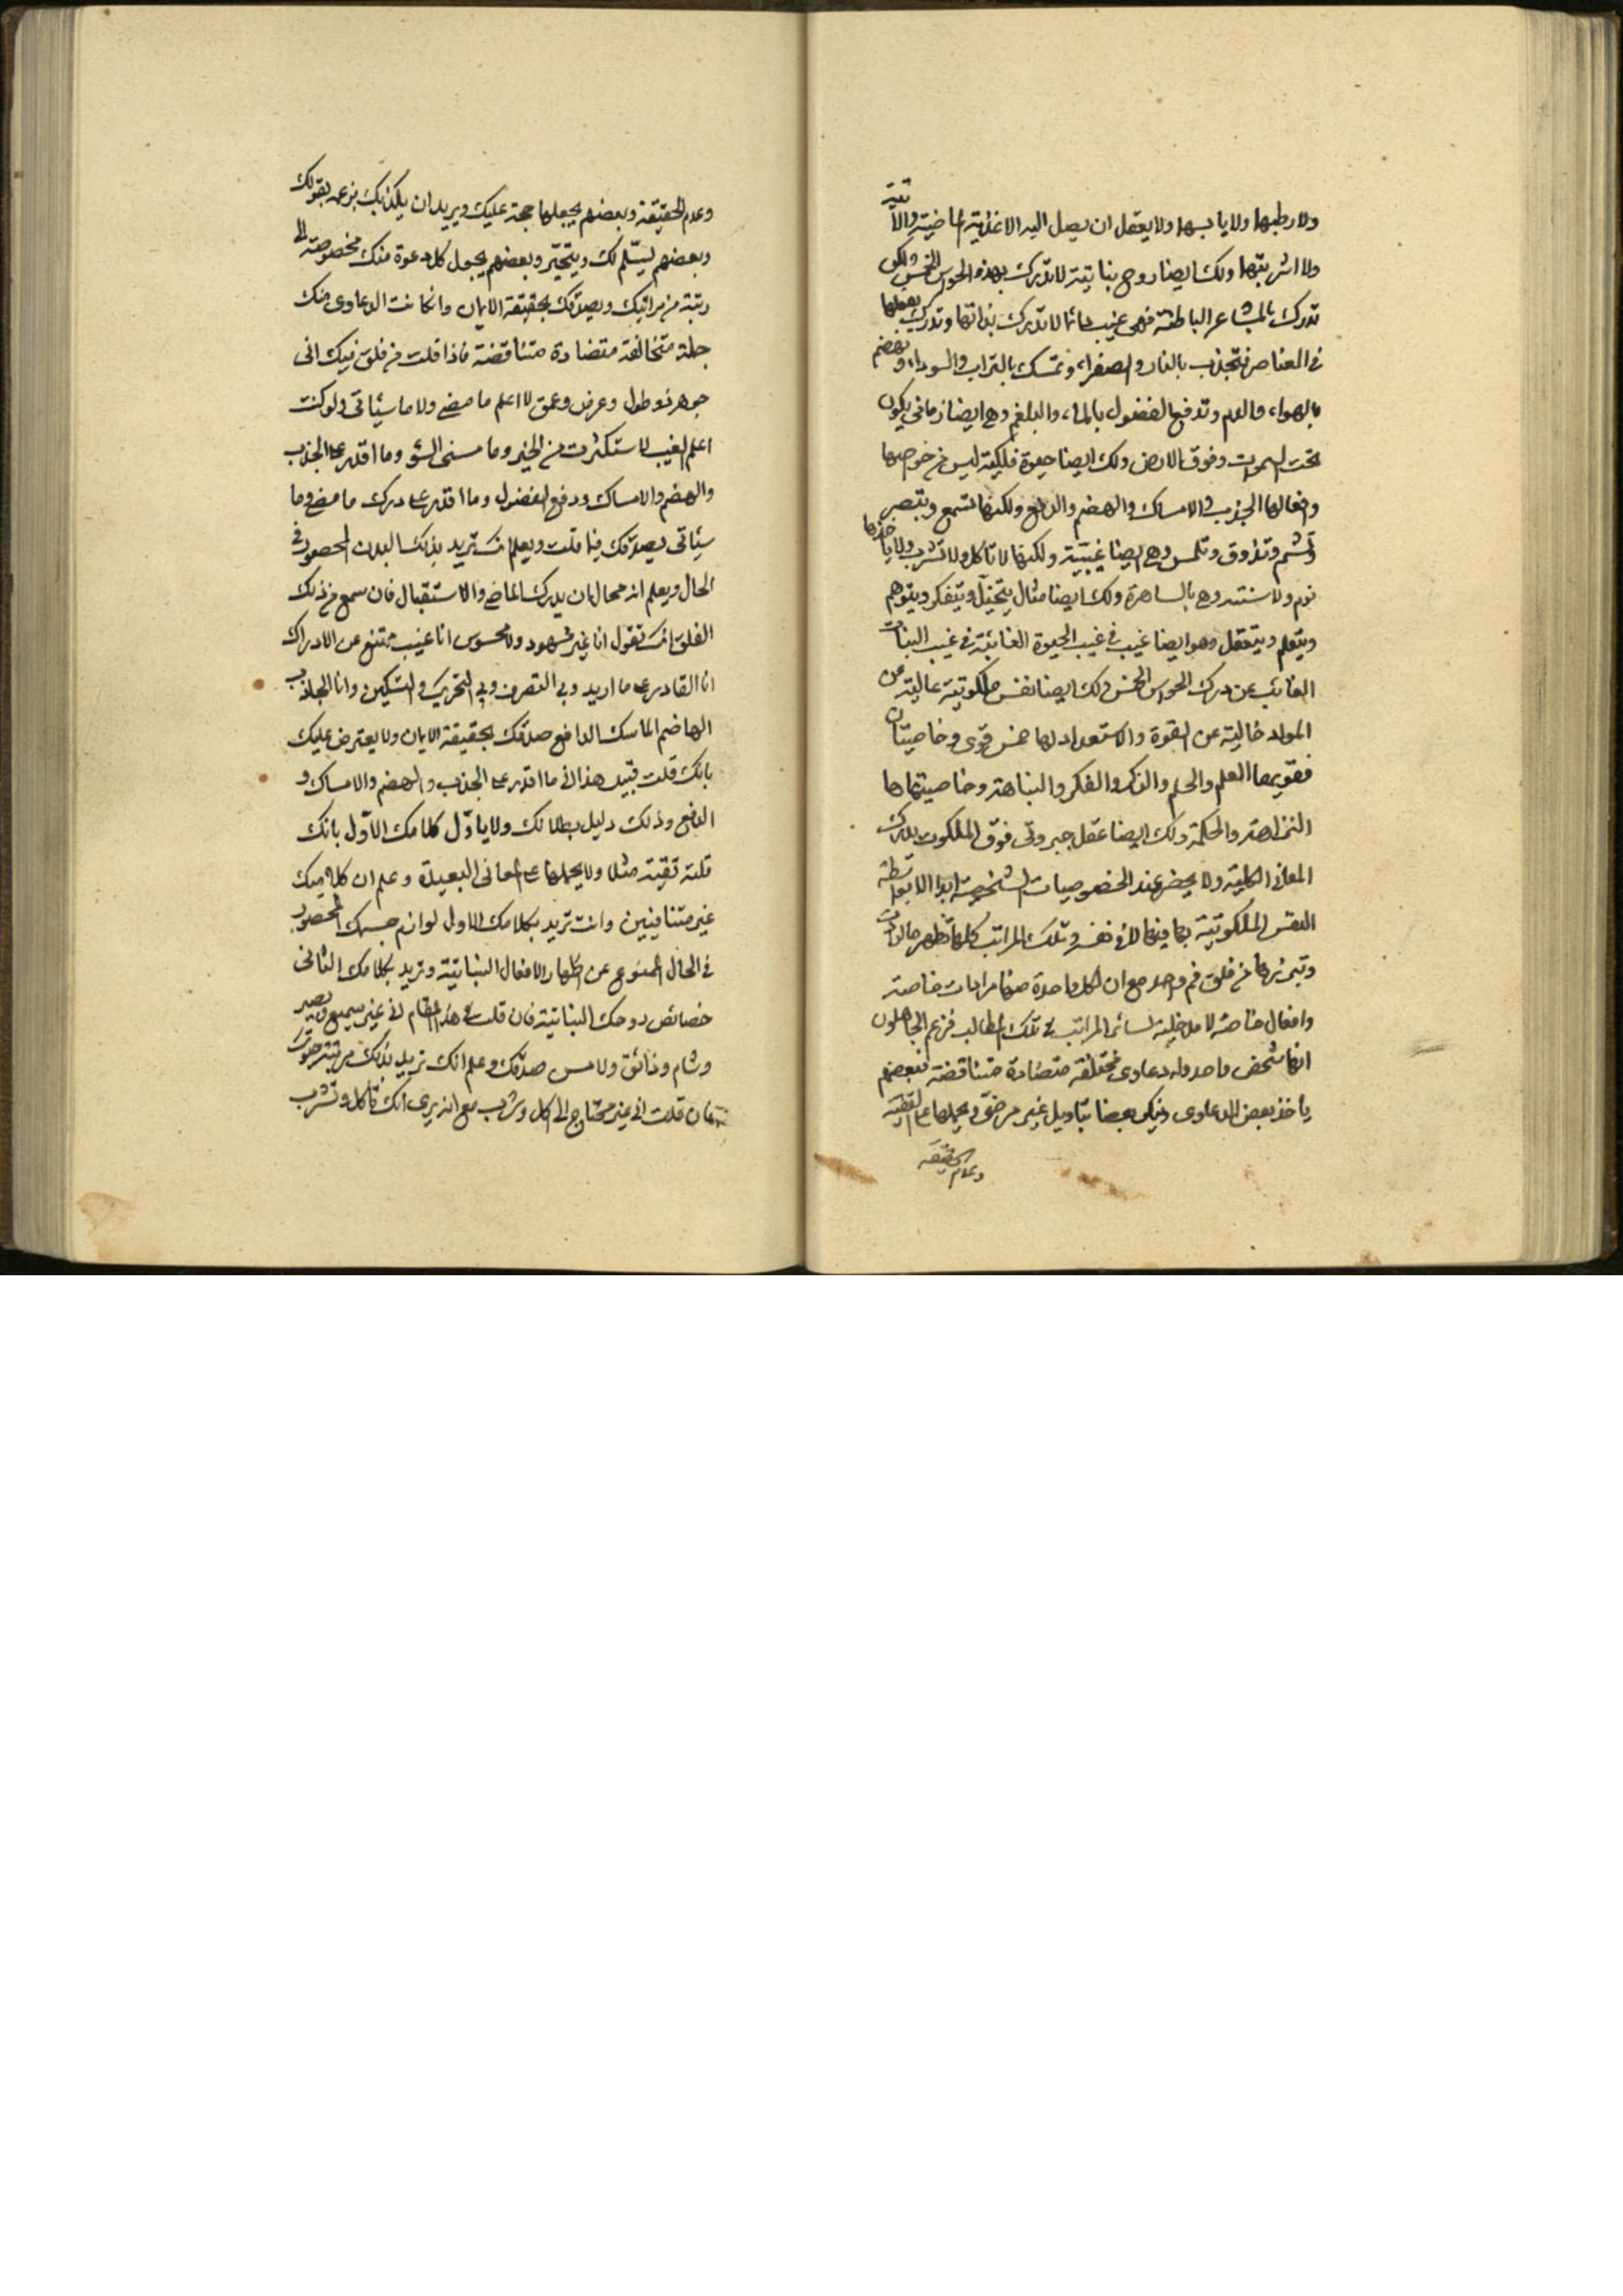 ولا رطبها ولا يابسها ولا يعقل ان يصل اليه الاغذية الماضية والآتية
ولا اشربتها ولك ايضا روح نباتية لا تدرك بهذه الحواس الخمس ولكن
تدرك بالمشاعر الباطنة فهى غيب دائما لا تدرك بذاتها وتدرك بفعلها
فى العناصر فتجذب بالنار والصفراء وتمسك بالتراب والسوداء وتهضم
بالهواء والدم وتدفع الفضول بالماء والبلغم وهى ايضا زمانى يكون
تحت السموات وفوق الارض ولك ايضا حيوة فلكية ليس من خواصها
وافعالها الجذب والامساك والهضم والدفع ولكنها تسمع وتبصر
وتشم وتذوق وتلمس وهى ايضا غيبية ولكنها لا تأكل ولا تشرب ولا ياخذها
نوم ولا سنة وهى بالساهرة ولك ايضا مثال يتخيل ويتفكر ويتوهم
ويتعلم ويتعقل وهو ايضا غيب فى غيب الحيوة الغائبة فى غيب النبات
الغائب عن درك الحواس الخمس ولك ايضا نفس ملكوتية عالية عن
المواد خالية عن القوة والاستعداد لها خمس قوى وخاصيتان
فقويها العلم والحلم والذكر والفكر والنباهة وخاصيتها
النزاهة والحكمة ولك ايضا عقل جبروتى فوق الملكوت يدرك
المعانى الكلية ولا يحضر عند الخصوصيات الشخصية ابدا الا بواسطة
النفس الملكوتية بما فيها لا فى نفسه وتلك المراتب كلها تظهر مالات
وتميزها من فلق فم واحد مع ان لكل واحدة منها مرادات خاصة
وافعال خاصة لا مدخلية لسائر المراتب فى تلك المطالب فزعم الجاهلون
انها شخص واحد وله دعاوى مختلفة متضادة متناقضة فبعضهم
ياخذ بعض الدعاوى وينكر بعضا بتاويل غير مرضى ويحملها على التقية
وعدم الحقيقة
وعدم الحقيقة وبعضهم يجعلها حجة عليك ويريد ان يكذبك بزعمه بقولك
وبعضهم يسلم لك ويتحير وبعضهم يجعل كل دعوة منك مخصوصة الى
رتبة من مراتبك ويصدقك بحقيقة الايمان وان كانت الدعاوى منك
جملة متخالفة متضادة متناقضة فاذا قلت من فلق فيك انى
جوهر ذو طول وعرض وعمق لا اعلم ما مضى ولا ما سيأتى ولو كنت
اعلم الغيب لاستكثرت من الخير وما مسنى السوء وما اقدر على الجذب
والهضم والامساك ودفع الفضول وما اقدر على درك ما مضى وما
سيأتى يصدقك فيما قلت ويعلم انك تريد بذلك البدن المحصور فى
الحال ويعلم انه محال ان يدرك الماضى والاستقبال فان سمع من ذلك
الفلق انك تقول انا غير مشهود ولا محسوس انا غيب ممتنع عن الادراك
انا القادر على ما اريد وبى التصرف وبى التحريك والتسكين وانا الجاذب
الهاضم الماسك الدافع صدقك بحقيقة الايمان ولا يعترض عليك
بانك قلت قبيل هذا انى ما اقدر على الجذب والهضم والامساك و
الدفع وذلك دليل بطلانك ولا ياول كلامك الاول بانك
قلته تقية مثلا ولا يحملها على المعانى البعيدة وعلم ان كلاميك
غير متنافيين وانت تريد بكلامك الاول لوازم جسمك المحصور
فى الحال الممنوع عن اظهار الافعال النباتية وتريد بكلامك الثانى
خصائص روحك النباتية فان قلت فى هذا المقام انى غير سميع وبصير
وشام وذائق ولامس صدقك وعلم انك تريد بذلك مرتبة حيوتك
فان قلت انى غير محتاج الى اكل وشرب مع انه يرى انك تأكل وتشرب